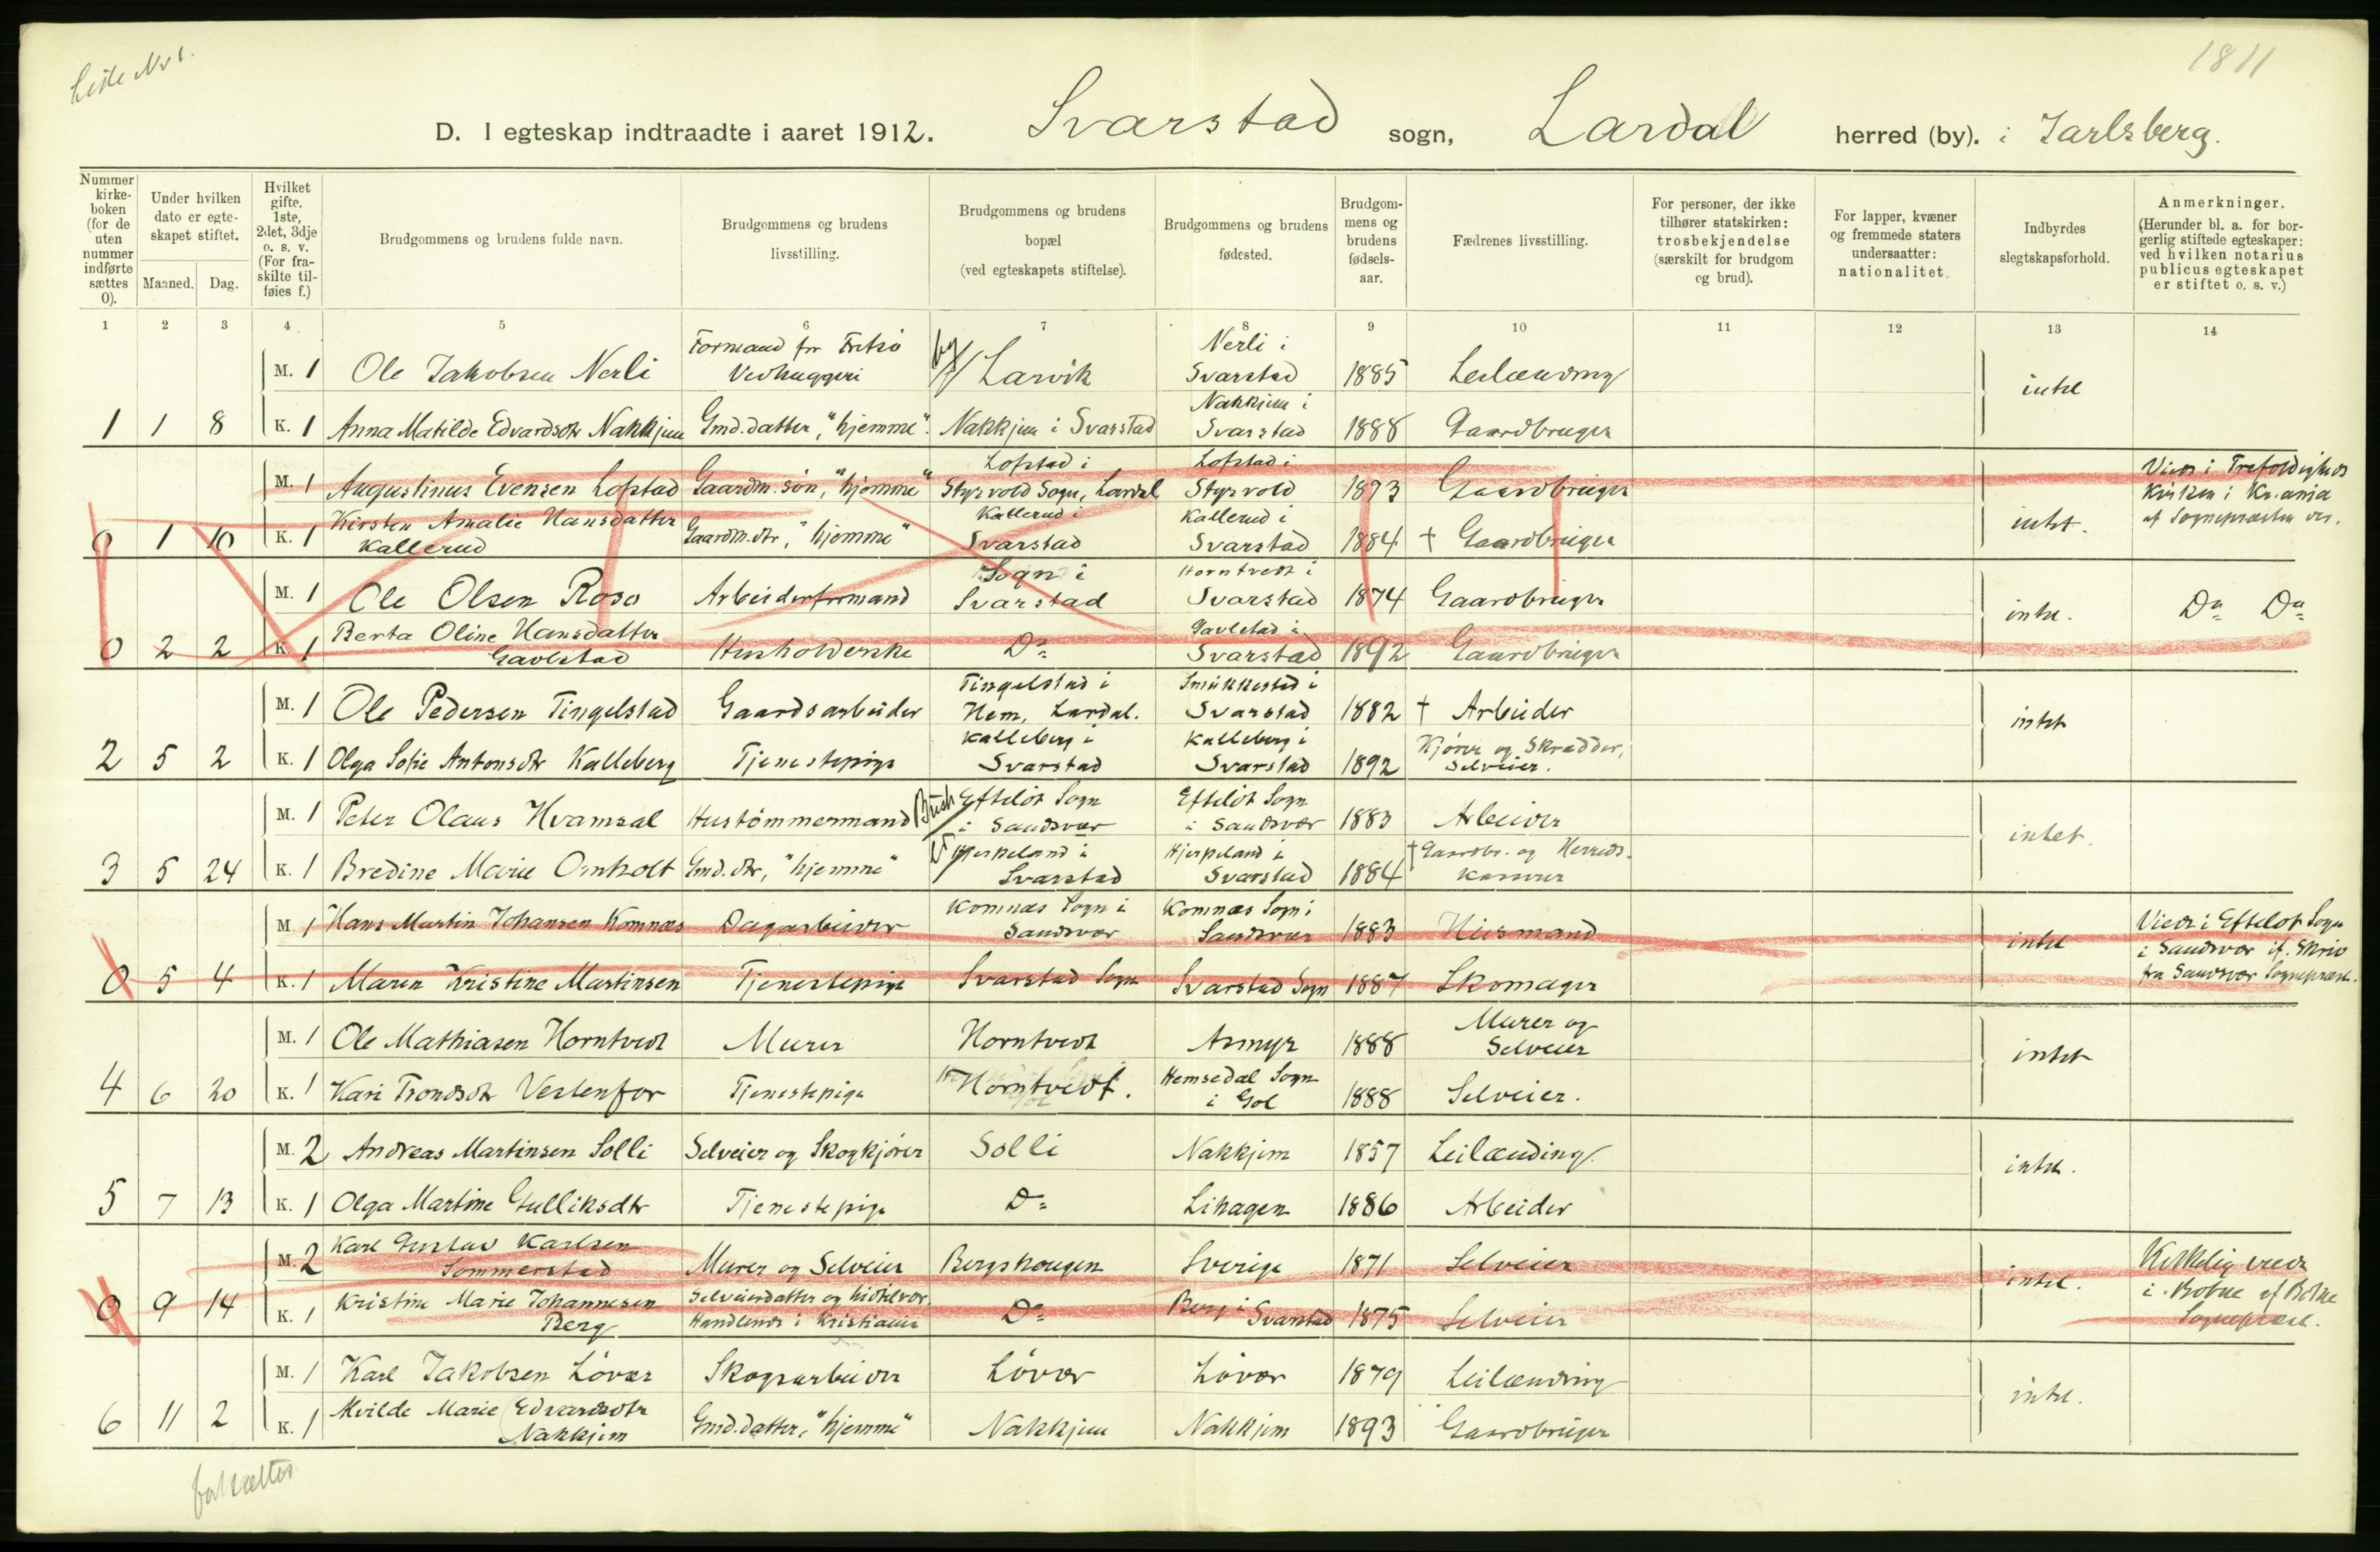 Liste No 1.
1811
D. I egteskap indtraadte i aaret 1912. Svarstad sogn, Lardal herred (by). i Jarlsberg.
Nummer kirkeboken (for de uten nummer indførte sættes 0).
Under hvilken dato er egteskapet stiftet.
Maaned. Dag.
Hvilket gifte. 1ste, 2det, 3dje o. s. v. (For fraskilte tilføies f.)
Brudgommens og brudens fulde navn.
Brudgommens og brudens livsstilling.
Brudgommens og brudens bopæl (ved egteskapets stiftelse).
Brudgommens og brudens fødested.
Brudgommens og brudens fødselsaar.
Fædrenes livsstilling.
For personer, der ikke tilhører statskirken: trosbekjendelse (særskilt for brudgom og brud).
For lapper, kvæner og fremmede staters undersaatter: nationalitet.
Indbyrdes slegtskapsforhold.
Anmerkninger. (Herunder bl. a. for borgerlig stiftede egteskaper: ved hvilken notarius publicus egteskapet er stiftet o. s. v.)
1 2 3 4 5 6 7 8 9 10 11 12 13 14
M. 1 Ole Jakobsen Nerli Formand for Fritsö Vedhuggeri by Larvik Nerli i Svarstad 1885 Leilænding intet
1 1 8 K. 1 Anna Matilde Edvardsdtr Nakkjem Gmd.datter, "hjemme". Nakkjem i Svarstad Nakkjem i Svarstad 1888 Gaardbruger
M. 1 Augustinus Evensen Lofstad Gaardm. søn, "hjemme" Lofstad i Styrvold Sogn, Lardal Lofstad i Styrvold 1873 Gaardbruger intet. Viede i Trefoldigheds Kirken i Kr.ania af Sognepræsten der.
0 1 10 K. 1 Kirsten Amalie Hansdatter Kallerud Gaardm.dtr, "hjemme" Kallerud i Svarstad Kallerud i Svarstad 1884 † Gaardbruger
M. 1 Ole Olsen Roso Arbeiderformand Sogn i Svarstad Horntvedt i Svarstad 1874 Gaardbruger intet. Do Do
0 2 2 K. 1 Berta Oline Hansdatter Gavlstad Husholderske Do Gavlstad i Svarstad 1892 Gaardbruger
M. 1 Ole Pedersen Tingelstad Gaardsarbeider Tingelstad i Hem, Lardal. Smukkestad i Svarstad 1882 † Arbeider intet
2 5 2 K. 1 Olga Sofie Antonsdtr Kalleberg Tjenestepige Kalleberg i Svarstad Kalleberg i Svarstad 1892 Kjører og Skrædder, Selveier.
M. 1 Peter Olaus Hvamsal Hustömmermand Efteløt Sogn i Sandsvær Efteløt Sogn i Sandsvær 1883 Arbeider intet.
3 5 24 K. 1 Bredine Marie Omholt Gmd.dtr, "hjemme" Hjerpeland i Svarstad Hjerpeland i Svarstad 1884 † Gaardbr. og Herredskasserer
M. 1 Hans Martin Johansen Komnæs Dagarbeider Komnæs Sogn i Sandsvær Komnæs Sogn i Sandsvær 1883 Husmand intet Viede i Efteløt Sogn i Sandsvær if. Skriv fra Sandsvær Sognepræst.
0 5 4 K. 1 Maren Kristine Martinsen Tjenestepige Svarstad Sogn Svarstad Sogn 1887 Skomager
M. 1 Ole Mathiasen Horntvedt Murer Horntvedt Asmyr 1888 Murer og Selveier intet
4 6 20 K. 1 Kari Trondsdtr Vestenfor Tjenestepige Horntvedt. Hemsedal Sogn i Gol 1888 Selveier.
M. 2 Andreas Martinsen Solli Selveier og Skogkjører Solli Nakkjem 1857 Leilænding intet.
5 7 13 K. 1 Olga Martine Gulliksdtr Tjenestepige Do Lihagen 1886 Arbeider
M. 2 Karl Gustav Karlsen Sommerstad Murer og Selveier Bergskougen Sverige 1871 Selveier intet. Kirkelig viede i Botne af Botne Sognepræst.
0 9 14 K. 1 Kristine Marie Johannesen Berg Selveierdatter og hidtil vær. Handlende i Kristiania Do Berg i Svarstad 1875 Selveier
M. 1 Karl Jakobsen Lövær Skogsarbeider Lövær Lövær 1879 Leilænding intet.
6 11 2 K. 1 Alvilde Marie Edvardsdtr Nakkjem Gmd.datter, "hjemme" Nakkjem Nakkjem 1893 Gaardbruger
fortsættes